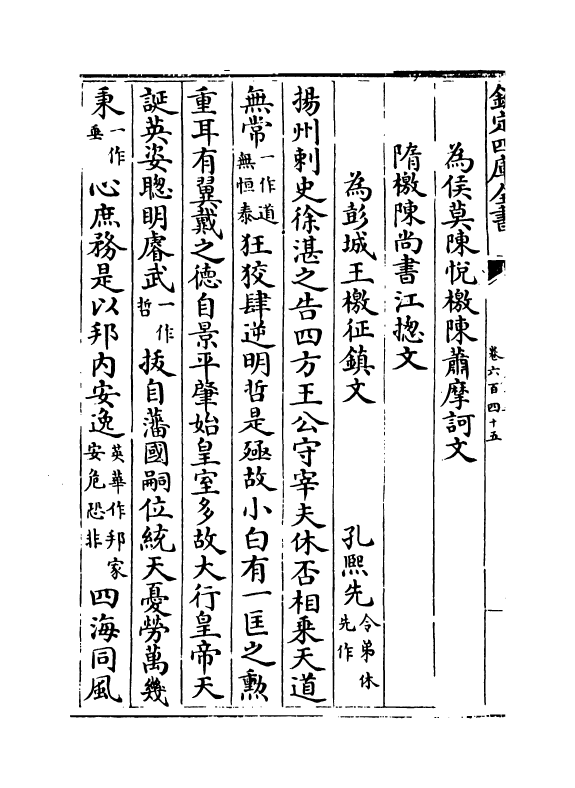 欽定四庫全書
卷六百四十五
為侯莫陳悅檄陳蕭摩訶文
隋檄陳尚書江揔文
為彭城王檄征鎮文 孔熙先令弟休先作
揚州刺史徐湛之告四方王公守宰夫休否相乘天道
無常一作道無恒泰狂狡肆逆明哲是殛故小白有一匡之勲
重耳有翼戴之德自景平肇始皇室多故大行皇帝天
誕英姿聰明睿武一作哲拔自藩國嗣位統天憂勞萬幾
秉一作垂心庶務是以邦内安逸英華作邦家安危恐非四海同風